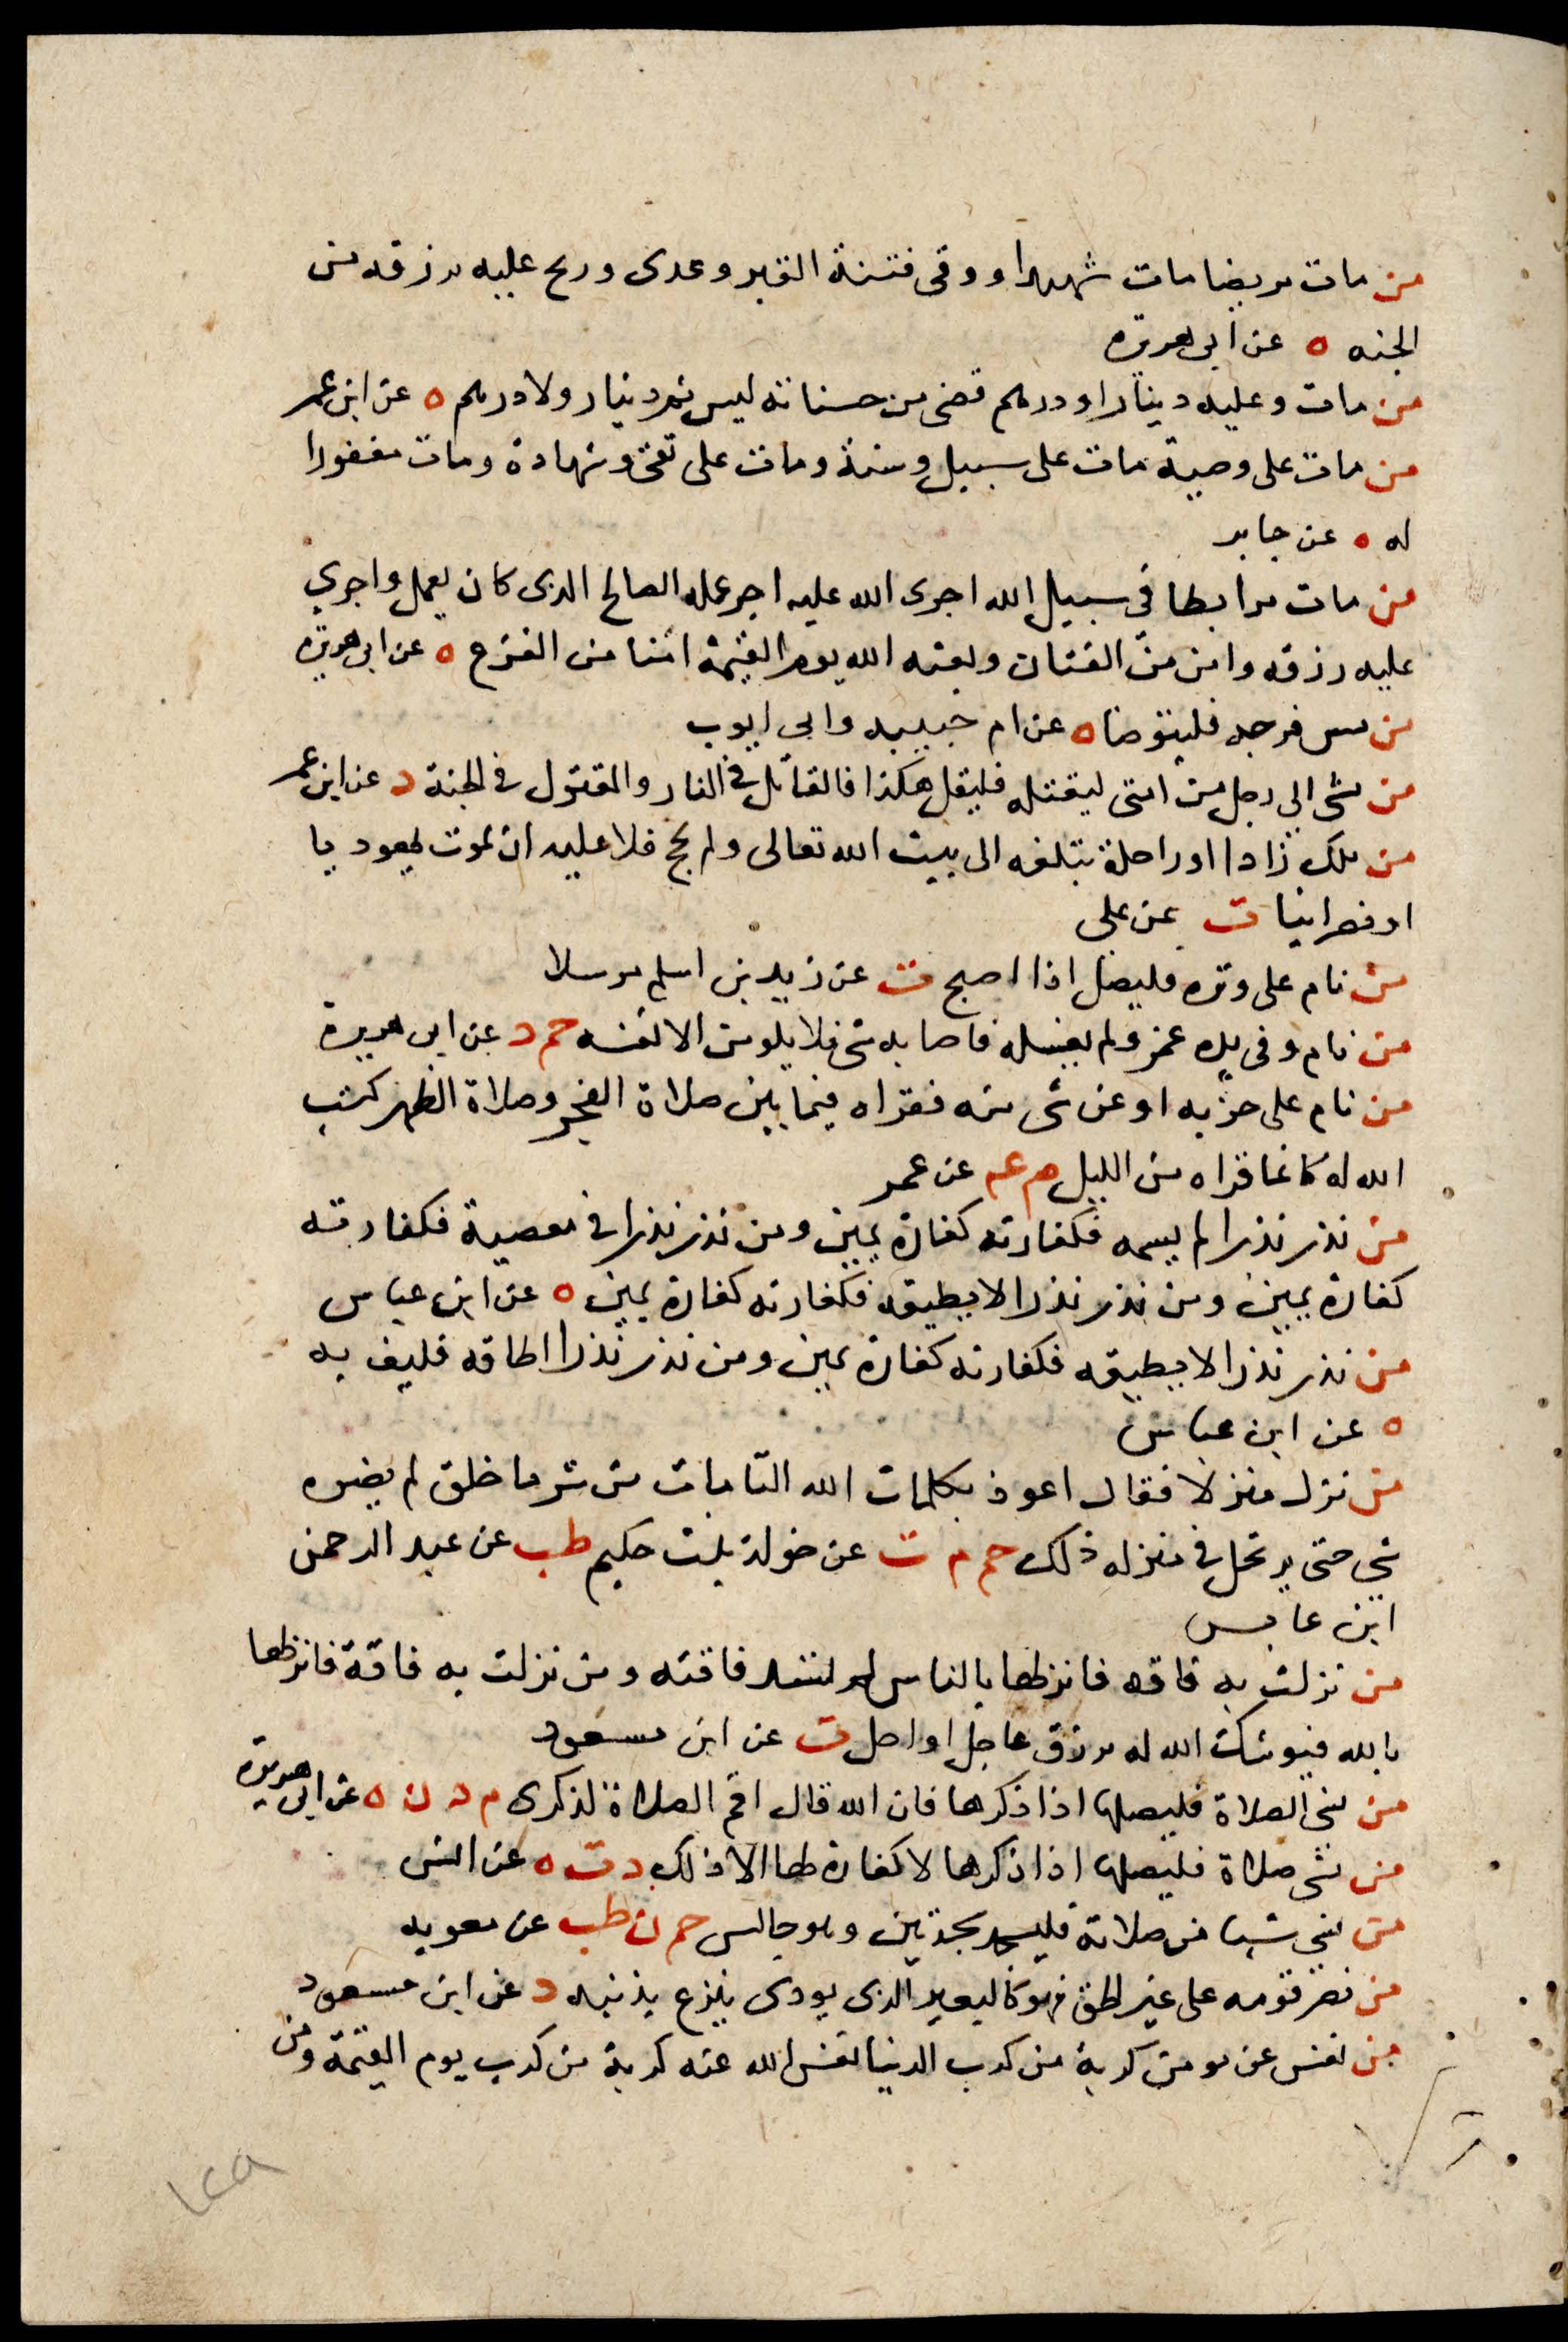 من مات مريضا مات شهيدا ووقى فتنة القبر وغدى وريح عليه برزقه من
الجنه ه عن ابى هريرة
من مات وعليه دينار او درهم قضى من حسناته ليس ثم دينار ولا درهم ه عن ابن عمر
من مات على وصية مات على سبيل وسنة ومات على تقى وشهادة ومات مغفورا
له ه عن جابر
من مات مرابطا فى سبيل الله اجرى الله عليه اجر عمله الصالح الذى كان يعمل واجرى
عليه رزقه وامن من الفتان وبعثه الله يوم القيمة امنا من الفزع ه عن ابى هريرة
من مس فرجه فليتوضا ه عن ام حبيبه وابى ايوب
من مشى الى رجل من امتى ليقتله فليقل هكذا فالقاتل فى النار والمقتول فى الجنة د عن ابن عمر
من ملك زادا او راحلة تبلغه الى بيت الله تعالى ولم يحج فلا عليه ان يموت يهوديا
او نصرانيا ت عن على
من نام على وتره فليصل اذا اصبح ت عن زيد بن اسلم مرسلا
من نام وفى يده غمر ولم يغسله فاصابه شى فلا يلومن الا نفسه حم د عن ابى هريرة
من نام على حزبه او عن شى منه فقراه فيما بين صلاة الفجر وصلاة الظهر كتب
الله له كانما قراه من الليل م عم عن عمر
من نذر نذرا لم يسمه فكفارته كفارة يمين ومن نذر نذرا فى معصية فكفارته
كفارة يمين ومن نذر نذرا لا يطيقه فكفارته كفارة يمين ه عن ابن عباس
من نذر نذرا لا يطيقه فكفارته كفارة يمين ومن نذر نذرا اطاقه فليف به
ه عن ابن عباس
من نزل منزلا فقال اعوذ بكلمات الله التامات من شر ما خلق لم يضره
شى حتى يرتحل فى منزله ذلك حم م ت عن خولة بنت حكيم طب عن عبد الرحمن
ابن عابس
من نزلت به فاقه فانزلها بالناس لم تسد فاقته ومن نزلت به فاقة فانزلها
بالله فيوشك الله له برزق عاجل او اجل ت عن ابن مسعود
من نسى الصلاة فليصلها اذا ذكرها فان الله قال اقم الصلاة لذكرى م د ن ه عن ابى هريرة
من نسى صلاة فليصلها اذا ذكرها لا كفارة لها الا ذلك د ت ه عن انس
من نسى شيا من صلاته فليسجد سجدتين وهو جالس حم ن طب عن معويه
من نصر قومه على غير الحق فهو كالبعير الذى يودى ينزع بذنبه د عن ابن مسعود
من نفس عن مومن كربة من كرب الدنيا نفس الله عنه كربة من كرب يوم القيمة ومن